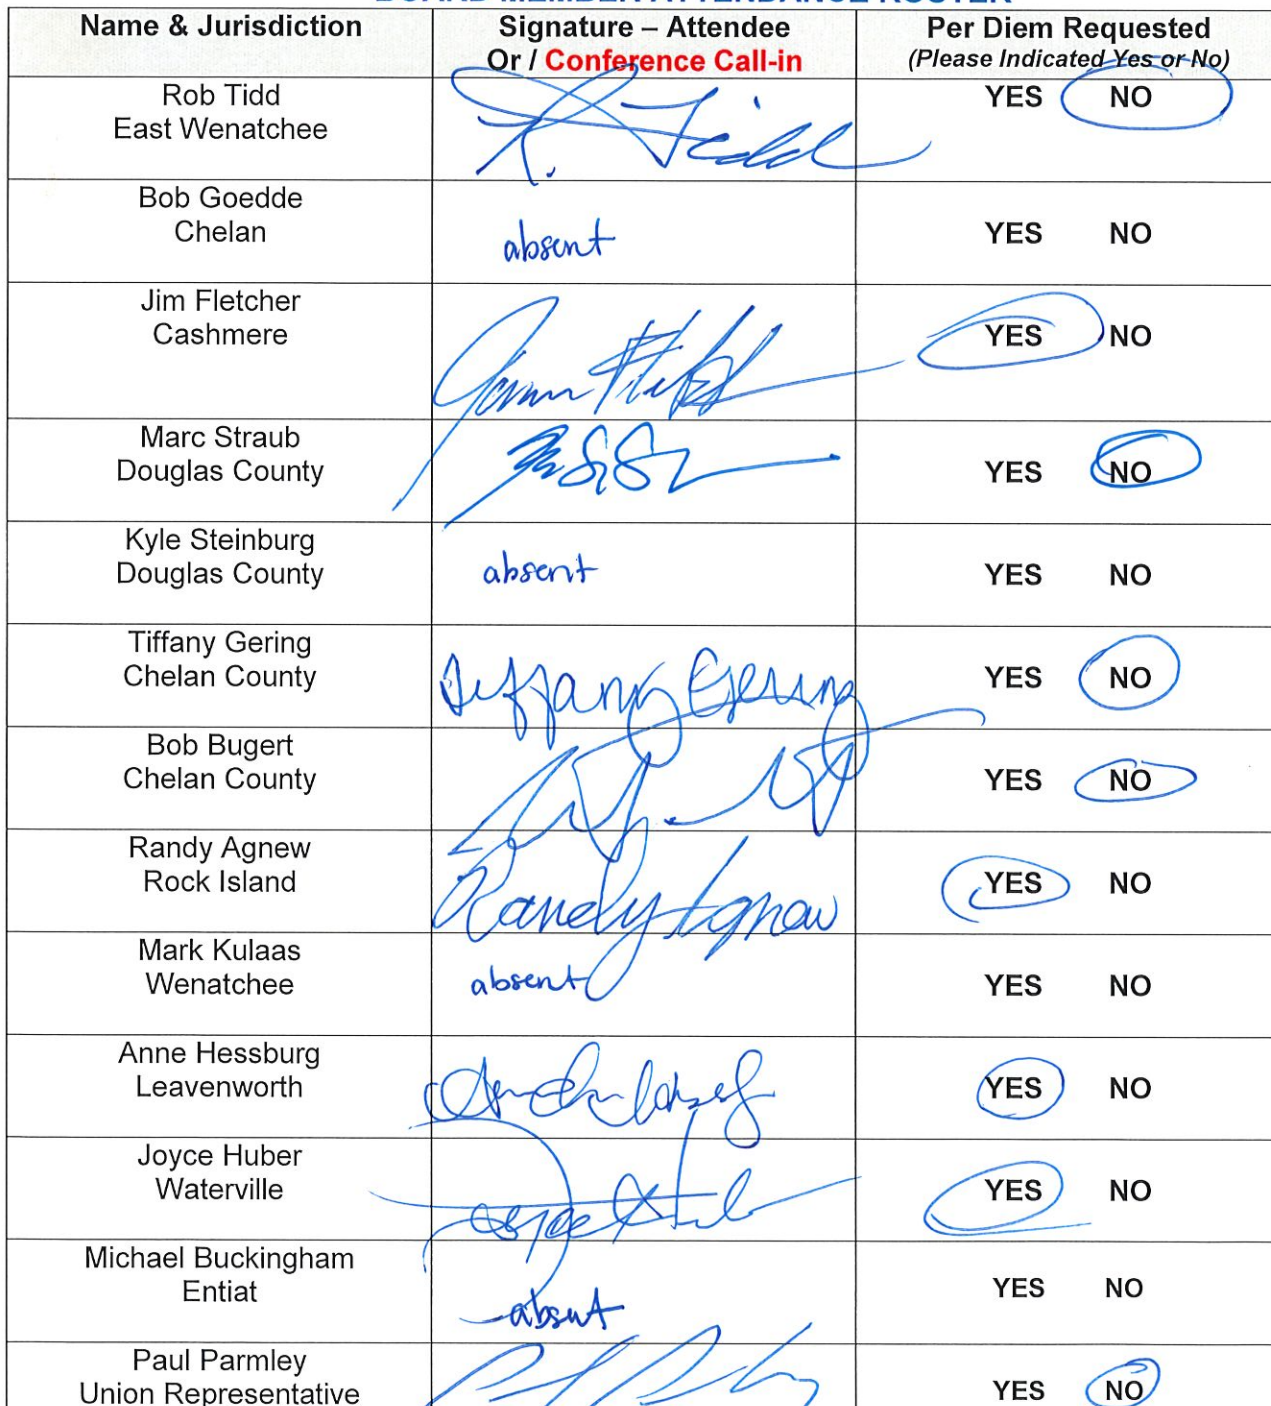 BOARD MEMBER ATTENDANCE ROSTER
Name & Jurisdiction
Signature – Attendee
Or / Conference Call-in
Per Diem Requested
(Please Indicated Yes or No)
Rob Tidd
East Wenatchee
R. Tidd
YES NO
Bob Goedde
Chelan
absent
YES NO
Jim Fletcher
Cashmere
YES NO
Marc Straub
Douglas County
YES NO
Kyle Steinburg
Douglas County
absent
YES NO
Tiffany Gering
Chelan County
Tiffany Gering
YES NO
Bob Bugert
Chelan County
YES NO
Randy Agnew
Rock Island
Randy Agnew
YES NO
Mark Kulaas
Wenatchee
absent
YES NO
Anne Hessburg
Leavenworth
YES NO
Joyce Huber
Waterville
YES NO
Michael Buckingham
Entiat
absent
YES NO
Paul Parmley
Union Representative
YES NO